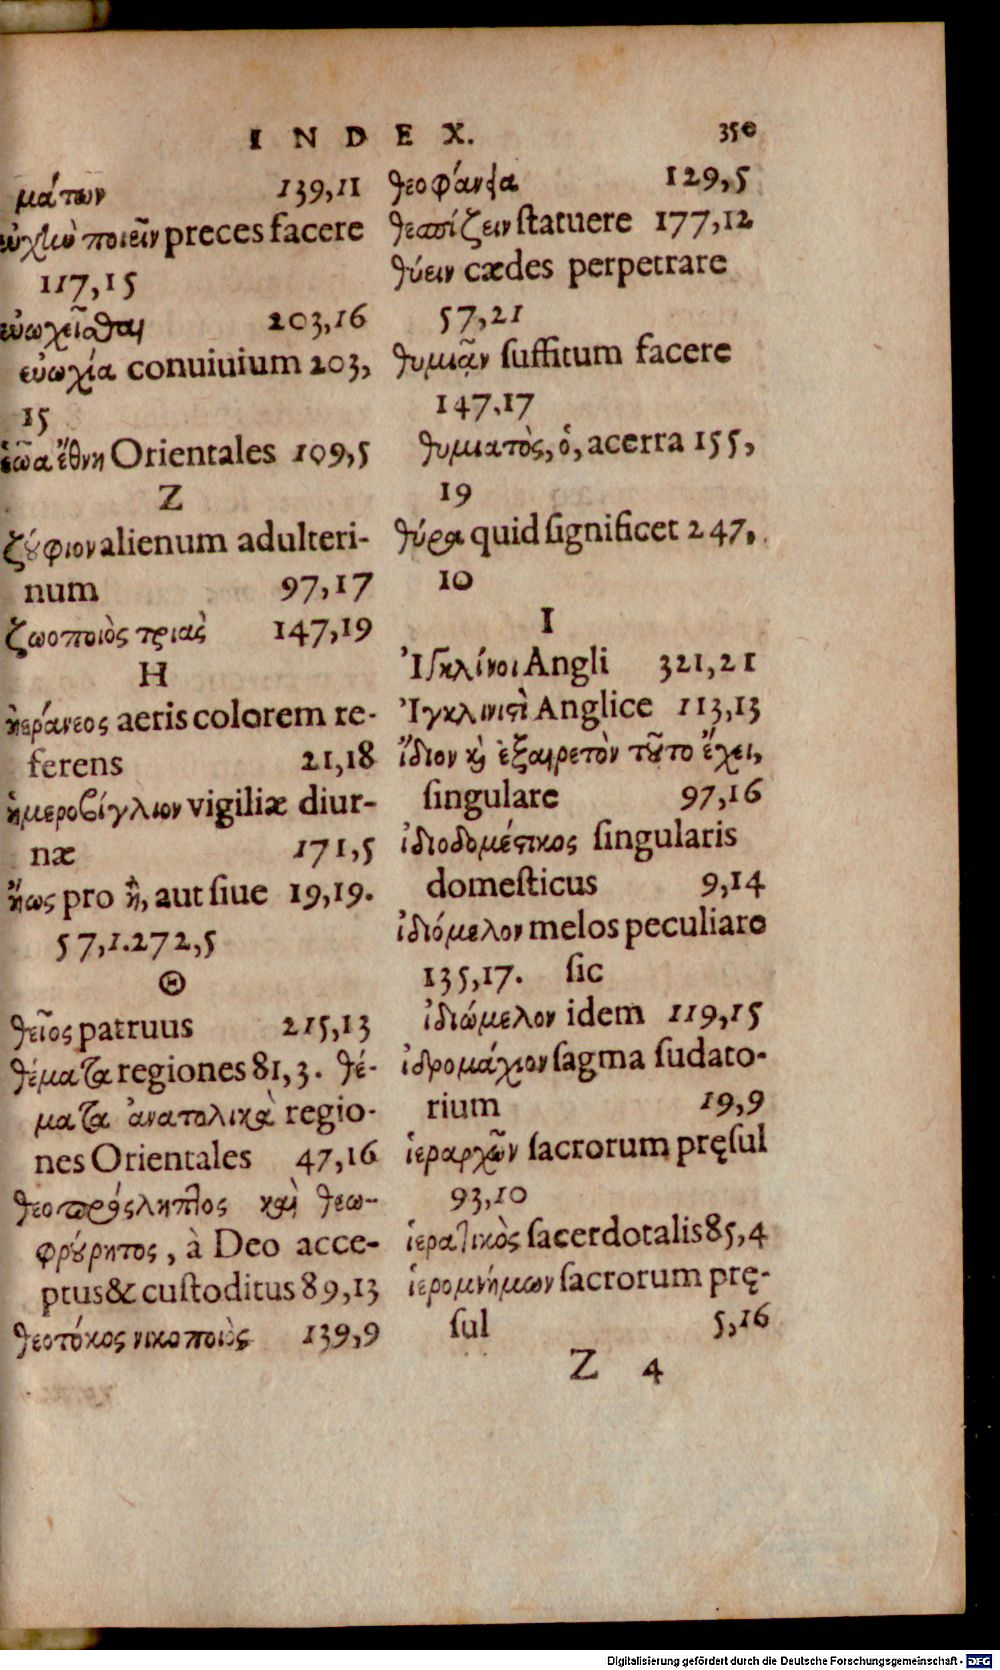 INDEX. 350
μάτων 139,11
εὐχὴν ποιεῖν preces facere
117,15
εὐωχεῖσθαι 203,16
εὐωχία conuiuium 203,
15
ἑῶα ἔθνη Orientales 109,5
Z
ζούφιον alienum adulteri-
num 97,17
ζωοποιὸς τριὰς 147,19
H
ἠεράνεος aeris colorem re-
ferens 21,18
ἡμεροβίγλιον vigiliæ diur-
næ 171,5
ἤως pro ἢ, aut siue 19,19.
57,1.272,5
Θ
θεῖος patruus 215,13
θέματα regiones 81,3. θέ-
ματα ἀνατολικὰ regio-
nes Orientales 47,16
θεοπρόςληπτος καὶ θεω-
φρούρητος, à Deo acce-
ptus & custoditus 89,13
θεοτόκος νικοποιὸς 139,9
θεοφάνεια 129,5
θεσπίζειν statuere 177,12
θύειν cædes perpetrare
57,21
θυμιᾷν suffitum facere
147.17
θυμιατὸς, ὁ, acerra 155,
19
θύρα quid significet 247,
10
I
Ἰγκλίνοι Angli 321,21
Ἰγκλινιστὶ Anglice 113,13
ἴδιον καὶ ἐξαιρετὸν τοῦτο ἔχει,
singulare 97,16
ἰδιοδομέστικος singularis
domesticus 9,14
ἰδιόμελον melos peculiare
135,17. sic
ἰδιώμελον idem 119,15
ἱδρομάχιον sagma sudato-
rium 19,9
ἱεραρχῶν sacrorum pręsul
93,10
ἱερατικὸς sacerdotalis 85,4
ἱερομνήμων sacrorum prę-
sul 5,16
Z 4
Digitalisierung gefördert durch die Deutsche Forschungsgemeinschaft - DFG